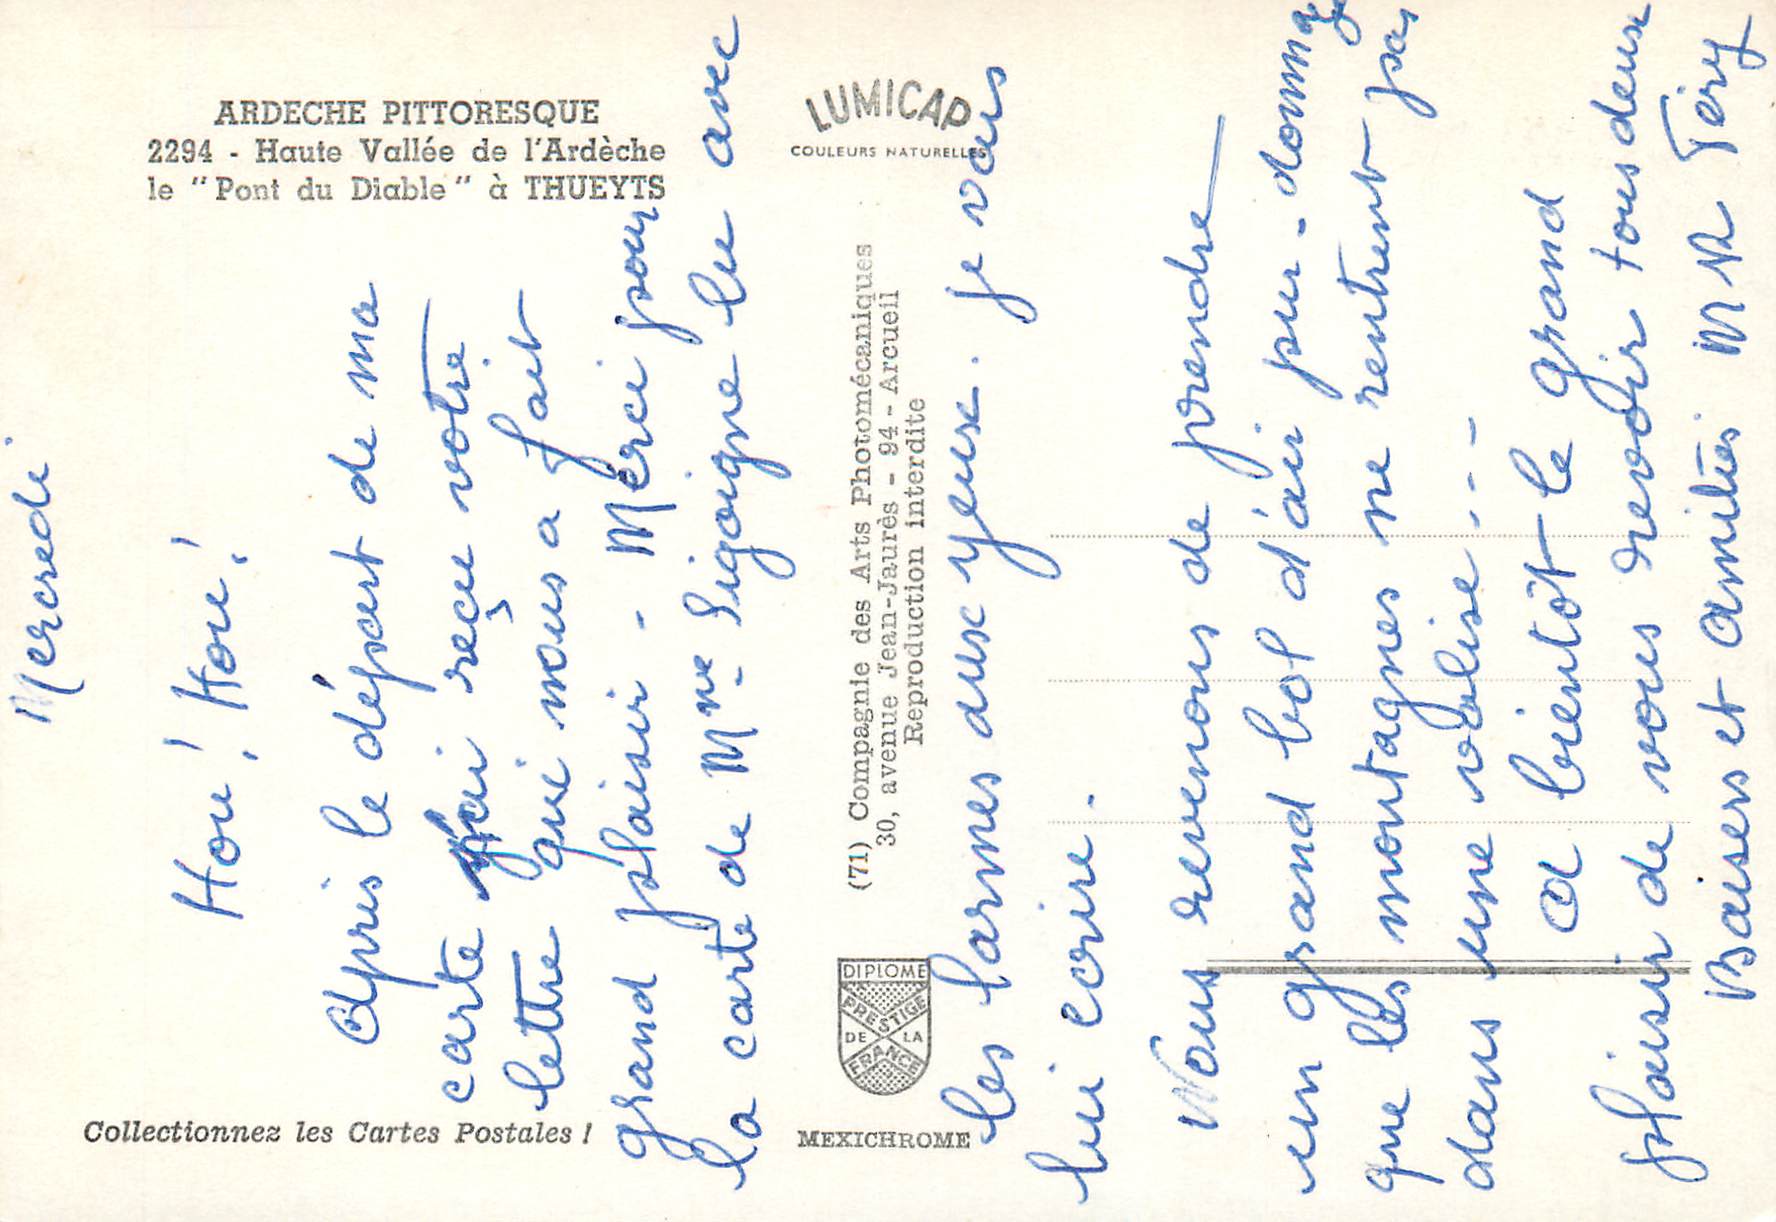 ARDECHE PITTORESQUE
2294 - Haute Vallée de l'Ardèche
le "Pont du Diable" à THUEYTS
LUMICAP
COULEURS NATURELLES
(71) Compagnie des Arts Photomécaniques
30, avenue Jean-Jaurès - 94 - Arcueil
Reproduction interdite
DIPLOME
PRESTIGE
DE LA
FRANCE
Collectionnez les Cartes Postales !
MEXICHROME
Mercredi
Hou ! Hou !
Après le départ de ma
carte j'ai reçu votre
lettre qui nous a fait
grand plaisir - Merci pour
la carte de Mme Sigoigne lu avec
les larmes aux yeux. je vais
lui écrire.
Nous revenons de prendre
un grand bol d'air pur - dommage
que les montagnes ne rentrent pas
dans une valise - - -
A bientôt le grand
plaisir de vous revoir tous deux
Baisers et amitiés